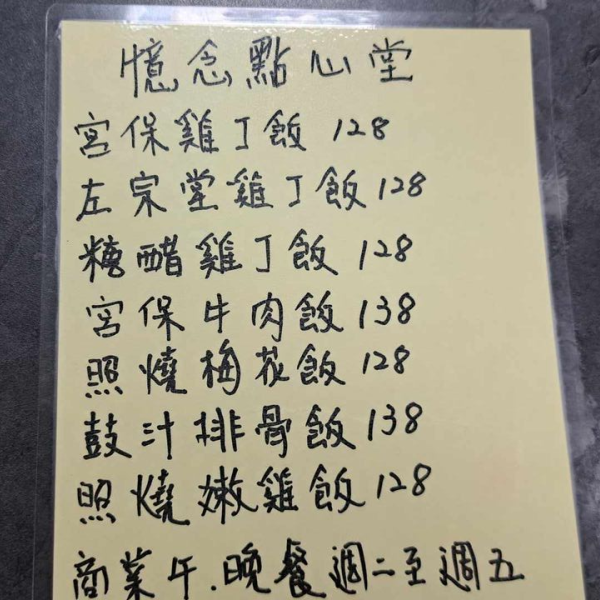 憶念點心堂
宮保雞丁飯 128
左宗堂雞丁飯 128
糖醋雞丁飯 128
宮保牛肉飯 138
照燒梅花飯 128
鼓汁排骨飯 138
照燒嫩雞飯 128
商業午.晚餐週二至週五